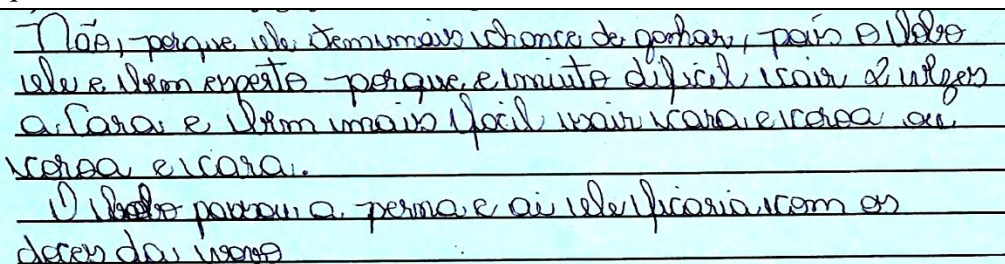 Não, porque ele tem mais chance de ganhar, pois o lobo
ele e bem experto porque e muito dificil sair 2 vezes
a Cara e bem mais facil sair cara e coroa ou
coroa e cara.
O lobo passou a perna e ai ele ficaria com os
doces da vovo